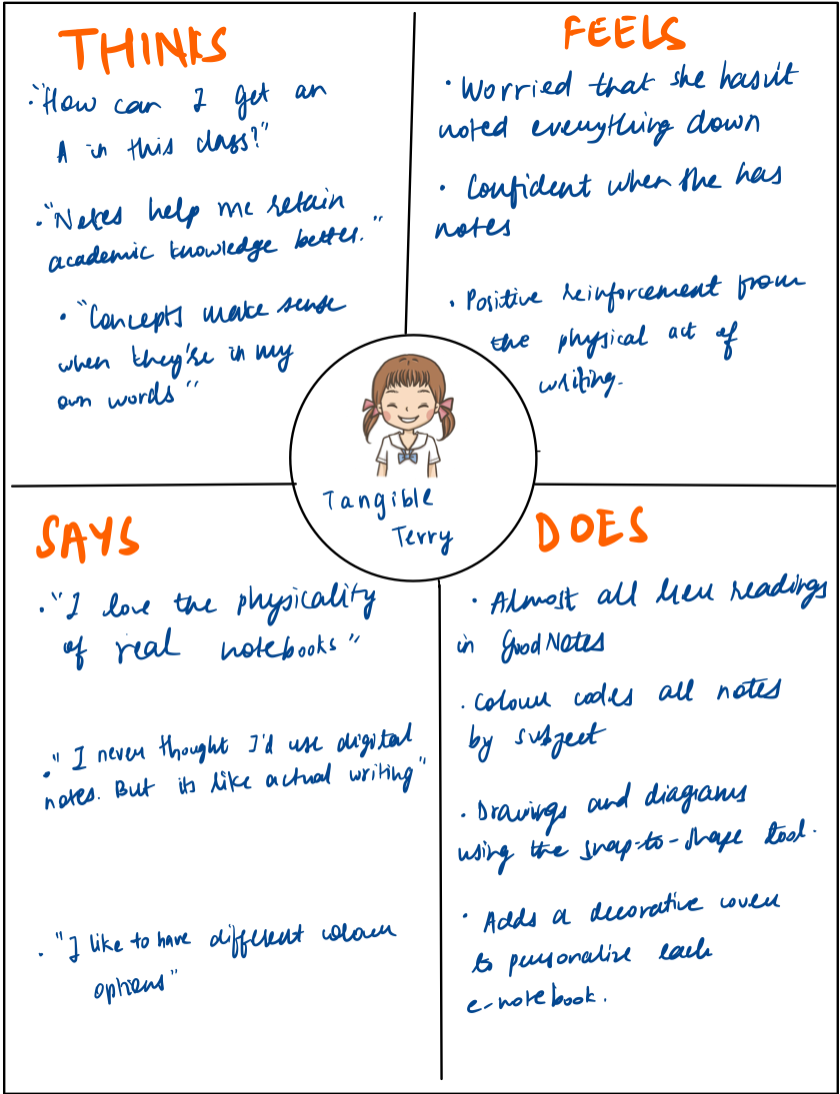 THINKS
· "How can I get an
A in this class?"
· "Notes help me retain
academic knowledge better."
· "Concepts make sense
when they're in my
own words"
FEELS
· Worried that she hasn't
noted everything down
· Confident when she has
notes
· Positive reinforcement from
the physical act of
writing.
Tangible
Terry
SAYS
· "I love the physicality
of real notebooks"
· "I never thought I'd use digital
notes. But its like actual writing"
· "I like to have different colour
options"
DOES
· Almost all her readings
in GoodNotes
· Colour codes all notes
by subject
· Drawings and diagrams
using the snap-to-shape tool.
· Adds a decorative cover
to personalize each
e-notebook.